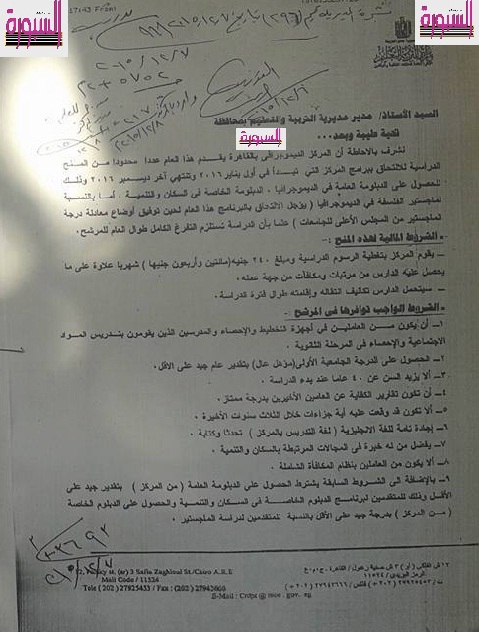 السبورة
السبورة
نشرة
السيد الأستاذ/ مدير مديرية التربية والتعليم بمحافظة
السبورة
تحية طيبة وبعد...
نتشرف بالاحاطة أن المركز الديموجرافى بالقاهرة يقدم هذا العام عددا محدودا من المنح
الدراسية للالتحاق ببرامج المركز التي تبدأ في أول يناير ٢٠١٦ وتنتهي آخر ديسمبر ٢٠١٦ وذلك
للحصول على الدبلومة العامة في الديموجرافيا ، الدبلومة الخاصة فى السكان والتنمية . أما بالنسبة
لماجستير الفلسفة في الديموجرافيا ( يؤجل الالتحاق بالبرنامج هذا العام لحين توفيق أوضاع معادلة درجة
الماجستير من المجلس الأعلى للجامعات ) علما بأن الدراسة تستلزم التفرغ الكامل طوال العام للمرشح.
- الشروط المالية لهذه المنح :-
- يقوم المركز بتغطية الرسوم الدراسية ومبلغ ٢٤٠ جنيه(مائتين وأربعون جنيها ) شهريا علاوة على ما
يحصل عليه الدارس من مرتبات ومكافآت من جهة عمله.
- سيتحمل الدارس تكاليف انتقاله وإقامته طوال فترة الدراسة.
- الشروط الواجب توافرها فى المرشح :-
١- أن يكون من العاملين في أجهزة التخطيط والإحصاء والمدرسين الذين يقومون بتدريس المواد
الاجتماعية والإحصاء فى المرحلة الثانوية .
٢- الحصول على الدرجة الجامعية الأولى(مؤهل عال) بتقدير عام جيد على الأقل.
٣- ألا يزيد السن عن ٤٠ عاما عند بدء الدراسة .
٤- أن تكون تقارير الكفاية عن العامين الأخيرين بدرجة ممتاز .
٥- ألا تكون قد وقعت عليه أية جزاءات خلال الثلاث سنوات الأخيرة .
٦- إجادة تامة للغة الانجليزية ( لغة التدريس بالمركز ) تحدثا وكتابة .
٧- يفضل من له خبرة فى المجالات المرتبطة بالسكان والتنمية .
٨- ألا يكون من العاملين بنظام المكافأة الشاملة .
٩- بالإضافة الى الشروط السابقة يشترط الحصول على الدبلومة العامة ( من المركز ) بتقدير جيد على
الأقل وذلك للمتقدمين لبرنامج الدبلوم الخاصة فى السكان والتنمية والحصول على الدبلوم الخاصة
( من المركز ) بدرجة جيد على الأقل بالنسبة للمتقدمين لدراسة الماجستير .
st. (ar) 3 Safia Zaghloul St./Cairo A.R.E
Mall Code / 11524
Tele ( 202 ) 27925453 / Fax : (202 )